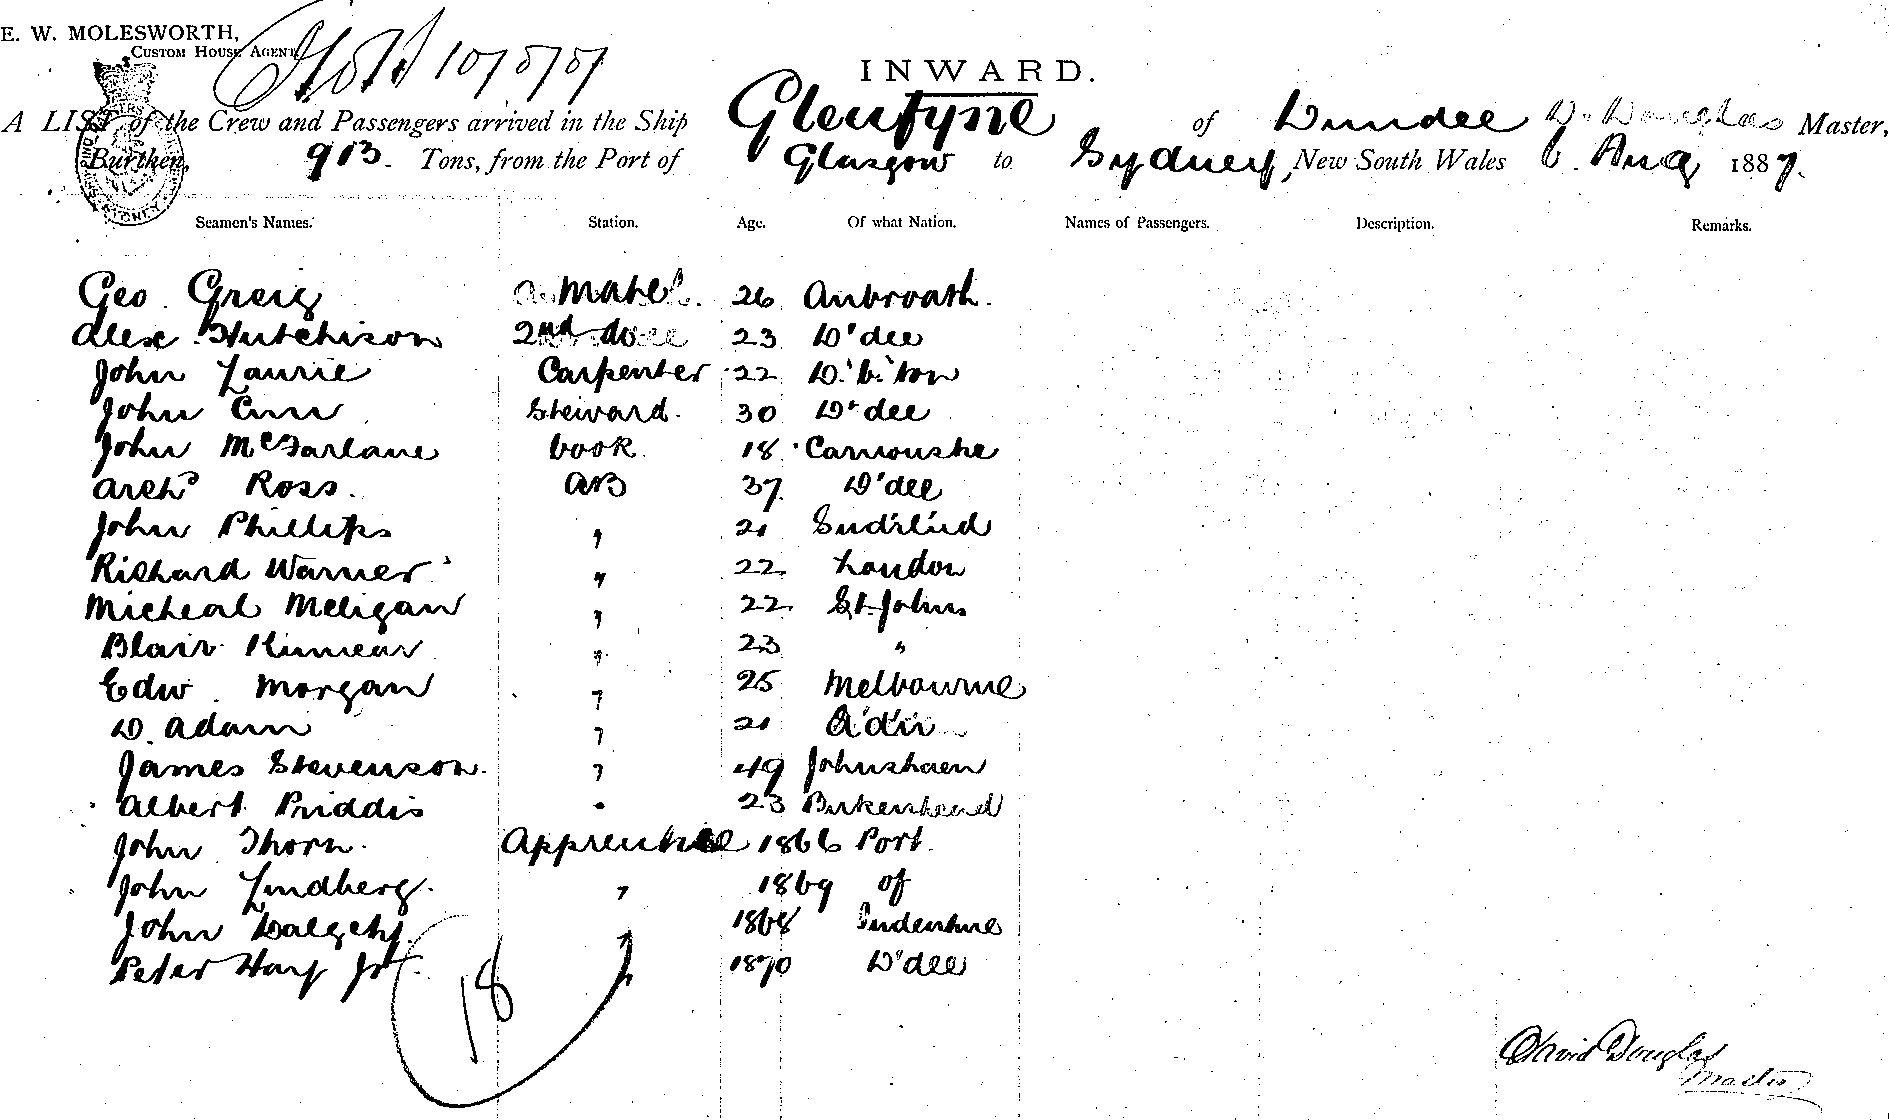 E. W. MOLESWORTH,
CUSTOM HOUSE AGENT
INWARD.
A LIST of the Crew and Passengers arrived in the Ship Glenfyne of Dundee D. Douglas Master,
Burthen, 913 Tons, from the Port of Glasgow to Sydney, New South Wales 6. Aug 1887.
Seamen's Names. Station. Age. Of what Nation. Names of Passengers. Description. Remarks.
Geo. Greig Mate 26 Arbroath.
Alex Hutchison 2nd do 23 D'dee
John Laurie Carpenter 22 D.'b.'ton
John Carr Steward. 30 D'dee
John McFarlane Cook 18 Carnoustie
Archd Ross. AB 37 D'dee
John Phillips " 21 Sud'rl'nd
Richard Warner " 22 London
Micheal Meligan " 22 St. Johns
Blair Kinnear " 23 "
Edw. Morgan " 25 Melbourne
D. Adam " 21
James Stevenson. " 49 Johnshaven
Albert Priddis " 23 Birkenhead
John Thorn. Apprentice 1866 Port
John Lindberg. " 1869 of
John Dalgety. 1868 Indenture
Peter Hay Jr. " 1870 D'dee
18
David Douglas
Master